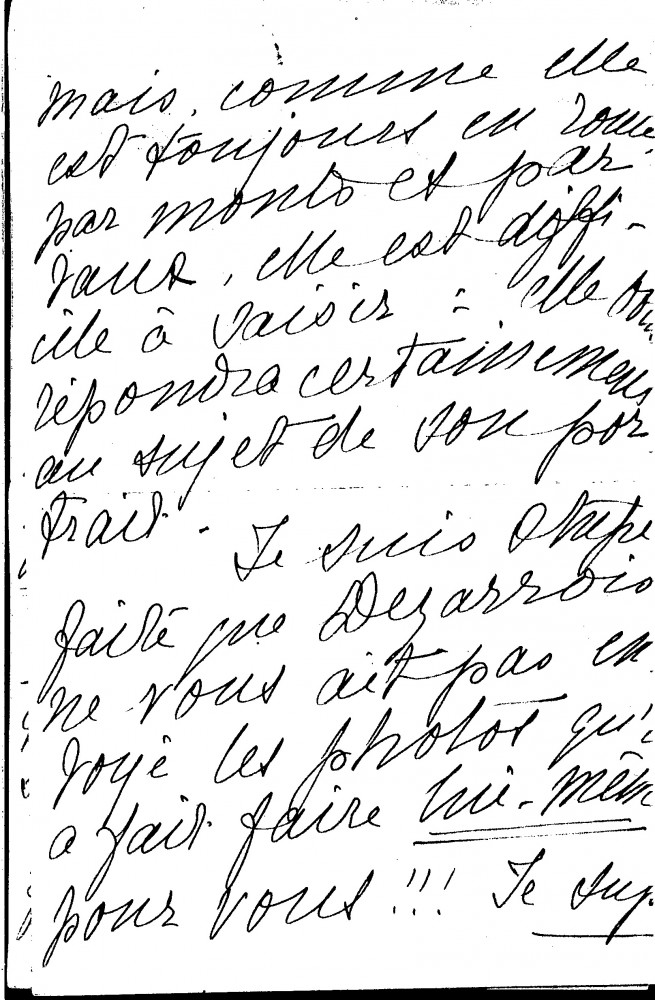 mais, comme elle
est toujours en route
par monts et par
vaux, elle est diffi-
cile à saisir : elle vous
répondra certainement
au sujet de son por
trait - Je suis stupé
faite que Dezarrois
ne vous ait pas en
voyé les photos qu'i
a fait faire lui-même
pour vous !!! Je sup